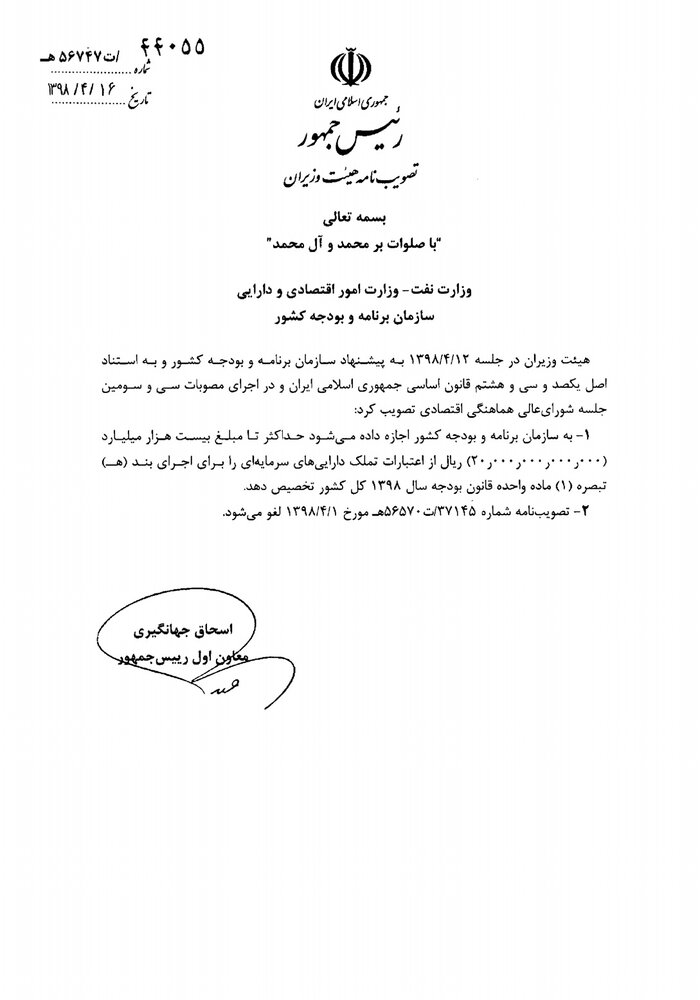 ۴۴۰۵۵
/ت۵۶۷۴۷ هـ
شماره
تاریخ ۱۳۹۸/۴/۱۶
جمهوری اسلامی ایران
رئیس جمهور
تصویب نامه هیئت وزیران
بسمه تعالی
"با صلوات بر محمد و آل محمد"
وزارت نفت - وزارت امور اقتصادی و دارایی
سازمان برنامه و بودجه کشور
هیئت وزیران در جلسه ۱۳۹۸/۴/۱۲ به پیشنهاد سازمان برنامه و بودجه کشور و به استناد
اصل یکصد و سی و هشتم قانون اساسی جمهوری اسلامی ایران و در اجرای مصوبات سی و سومین
جلسه شورای‌عالی هماهنگی اقتصادی تصویب کرد:
۱- به سازمان برنامه و بودجه کشور اجازه داده می‌شود حداکثر تا مبلغ بیست هزار میلیارد
(۲۰ر۰۰۰ر۰۰۰ر۰۰۰ر۰۰۰) ریال از اعتبارات تملک دارایی‌های سرمایه‌ای را برای اجرای بند (هـ)
تبصره (۱) ماده واحده قانون بودجه سال ۱۳۹۸ کل کشور تخصیص دهد.
۲- تصویب‌نامه شماره ۳۷۱۴۵/ت۵۶۵۷۰هـ مورخ ۱۳۹۸/۴/۱ لغو می‌شود.
اسحاق جهانگیری
معاون اول رییس‌جمهور